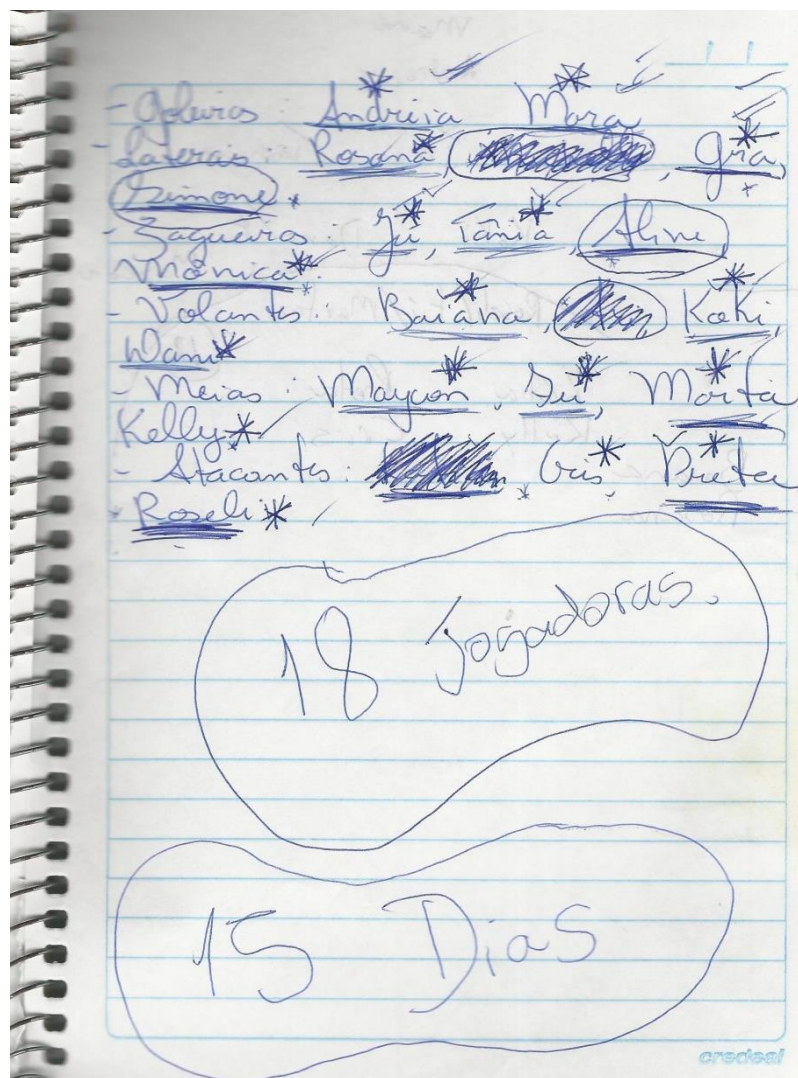 - Goleiros: Andréia Mara
- Laterais: Rosana, , Gra,
Simone.
- Zagueiros: Ju, Tânia, Aline,
Mônica
- Volantes: Baiana, , Koki,
Dani
- Meias: Maycon, Ju, Marta
Kelly
- Atacantes: Cris, Preta
Roseli
18 Jogadoras.
15 Dias
credeal